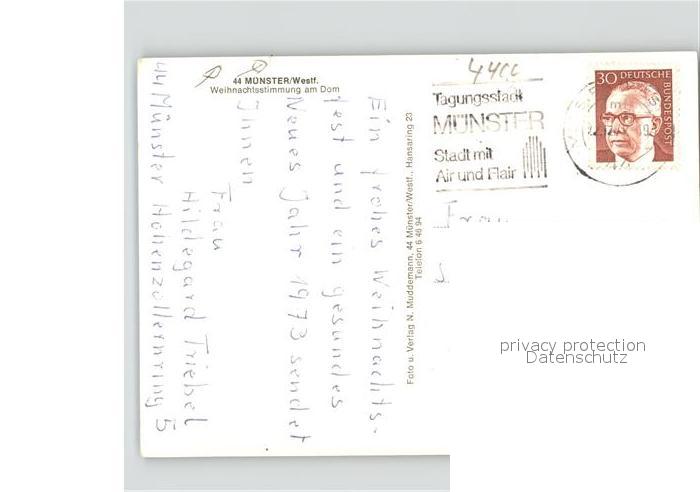 44 MÜNSTER/Westf.
Weihnachtsstimmung am Dom
Ein frohes Weihnachts-
fest und ein gesundes
Neues Jahr 1973 sendet
Ihnen
Frau
Hildegard Triebel
44 Münster Hohenzollernring 5
Foto u. Verlag N. Muddemann, 44 Münster/Westf., Hansaring 23
Telefon 6 46 94
4400
Tagungsstadt
MÜNSTER
Stadt mit
Air und Flair
30 DEUTSCHE
BUNDESPOST
Frau
privacy protection
Datenschutz